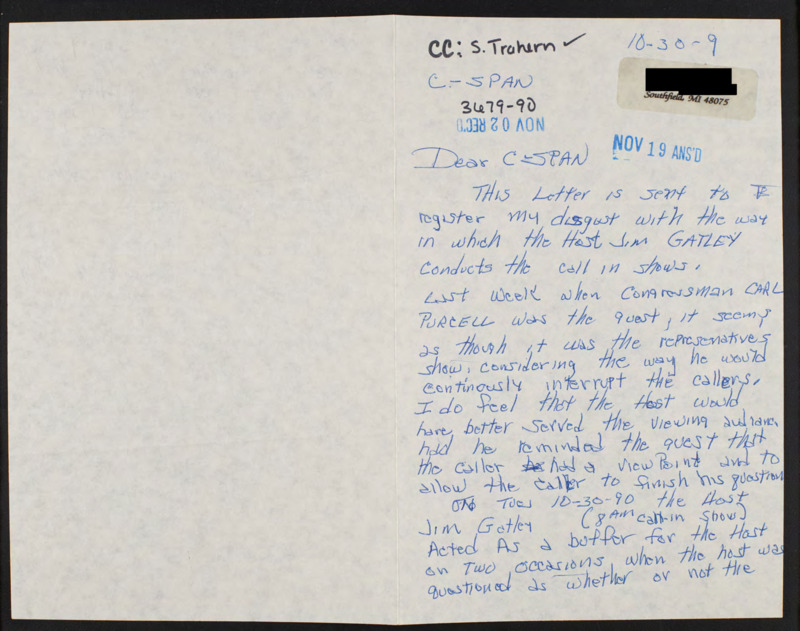 CC: S. Trahern ✓
10-30-9
C-SPAN
3679-90
Southfield, MI 48075
NOV 02 REC'D
NOV 19 ANS'D
Dear C-SPAN
THis Letter is sent to
register my disgust with the way
in which the Host Jim GATLEY
conducts the call in shows.
Last Week when Congressman CARL
PURCELL was the quest, it seems
as though it was the represenatives
show, considering the way he would
continously interrupt the callers.
I do feel that the Host would
have better served the viewing
had he reminded the quest that
the caller had a view Point and to
allow the caller to finish his question
ON Tues 10-30-90 the Host
Jim Gatley (8 AM call-in show)
Acted As a buffer for the Host
on Two occasions when the host was
questioned as whether or not the